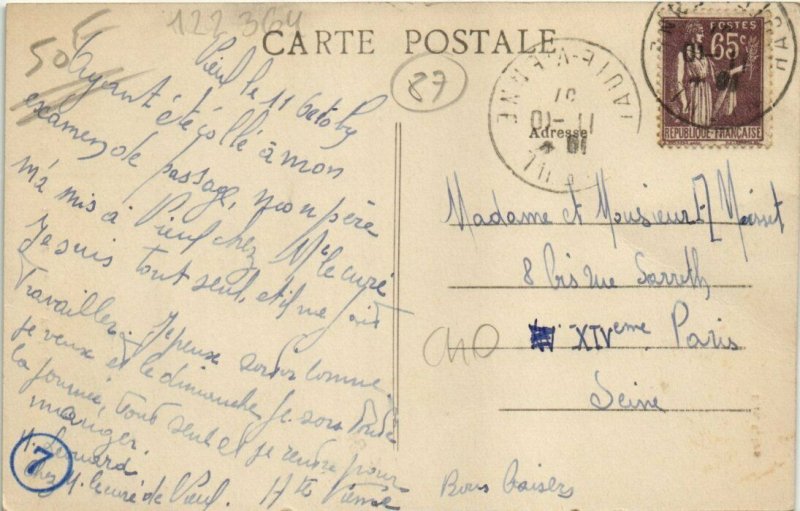 122364
50
CARTE POSTALE
87
le 11 Octobre
Ayant été collé à mon
examen de passage, mon père
m'a mis à chez Mr le curé
Je suis tout seul, et il me fait
travailler. Je peux sortir comme
je veux et le dimanche je sors toute
la journée, tout seul et je rentre pour
manger.
chez M. le curé de
Hte Vienne
7
Bons baisers
HAUTE-VIENNE
11-10
37
Adresse
POSTES
65c
REPUBLIQUE FRANÇAISE
Madame et Monsieur
8 bis rue Sarrette
XIVeme Paris
Seine